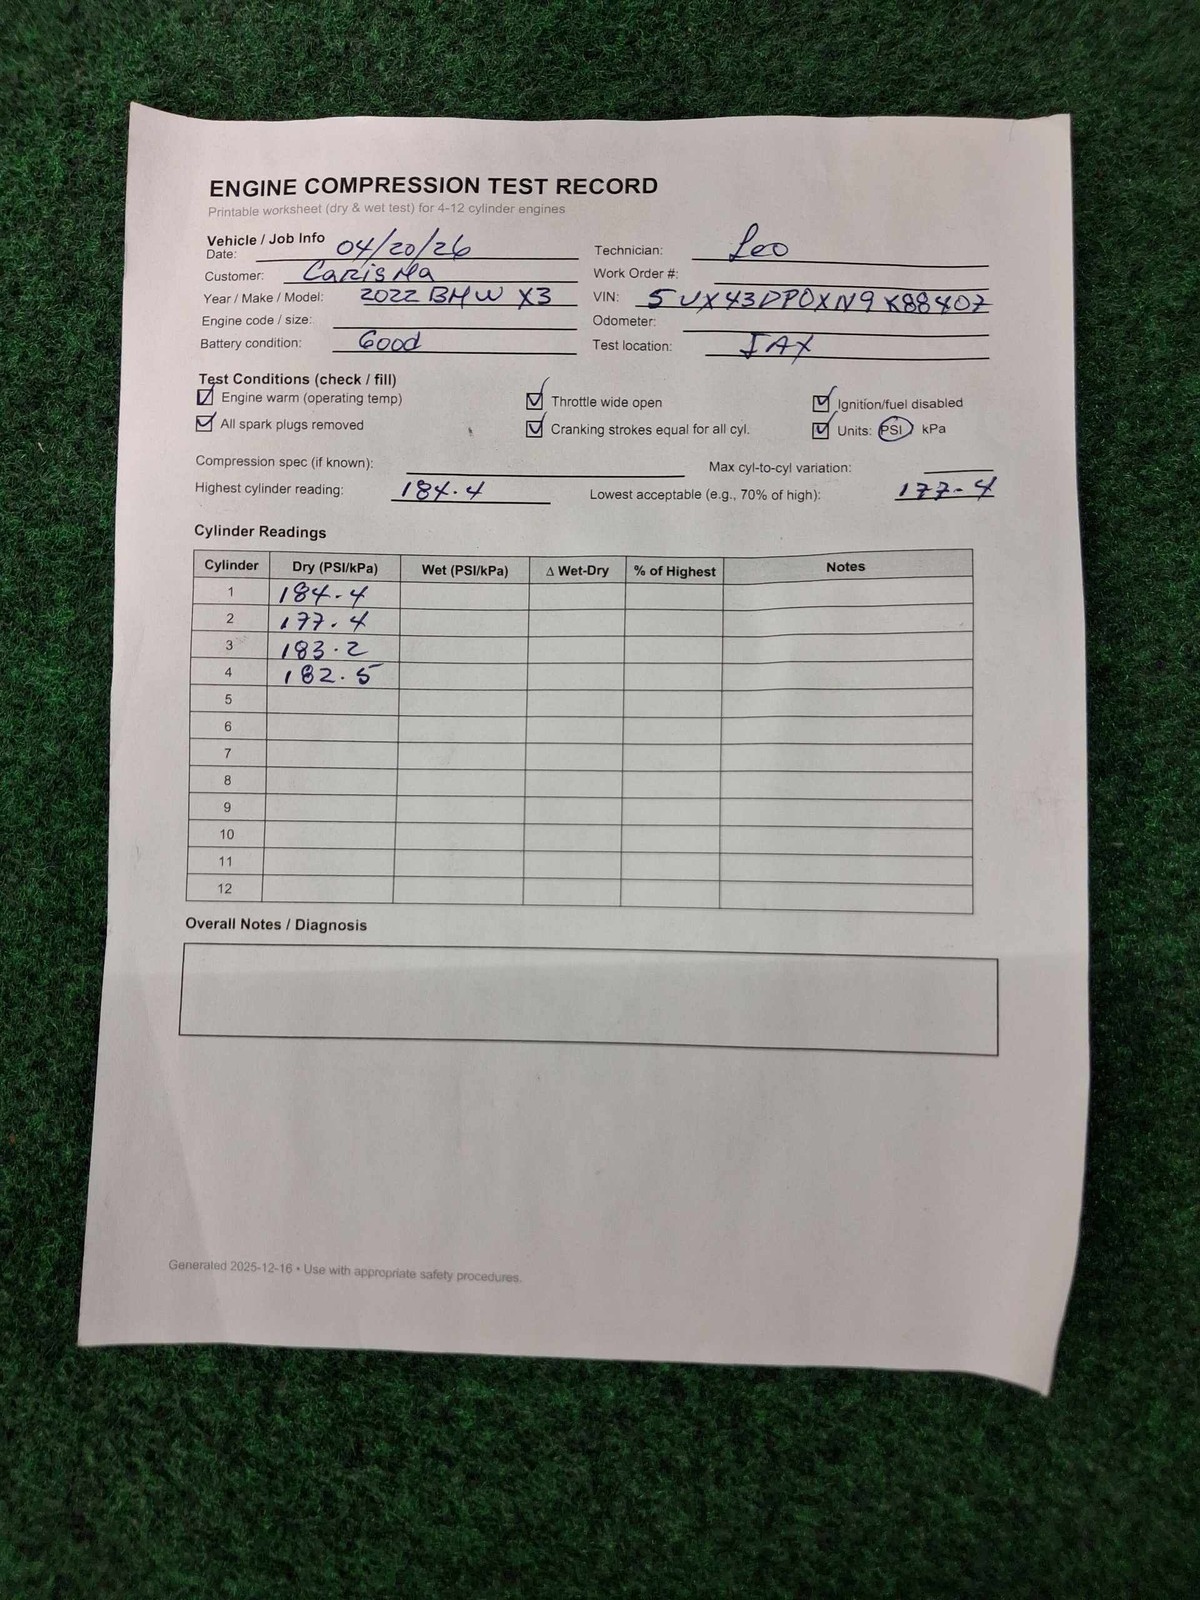 ENGINE COMPRESSION TEST RECORD
Printable worksheet (dry & wet test) for 4-12 cylinder engines
Vehicle / Job Info
Date: 04/20/26 Technician: Leo
Customer: Carisma Work Order #:
Year / Make / Model: 2022 BMW X3 VIN: 5UX43DP0XN9K88407
Engine code / size: Odometer:
Battery condition: Good Test location: JAX
Test Conditions (check / fill)
Engine warm (operating temp) Throttle wide open Ignition/fuel disabled
All spark plugs removed Cranking strokes equal for all cyl. Units: PSI kPa
Compression spec (if known): Max cyl-to-cyl variation:
Highest cylinder reading: 184.4 Lowest acceptable (e.g., 70% of high): 177.4
Cylinder Readings
Cylinder Dry (PSI/kPa) Wet (PSI/kPa) Δ Wet-Dry % of Highest Notes
1 184.4
2 177.4
3 183.2
4 182.5
5
6
7
8
9
10
11
12
Overall Notes / Diagnosis
Generated 2025-12-16 • Use with appropriate safety procedures.